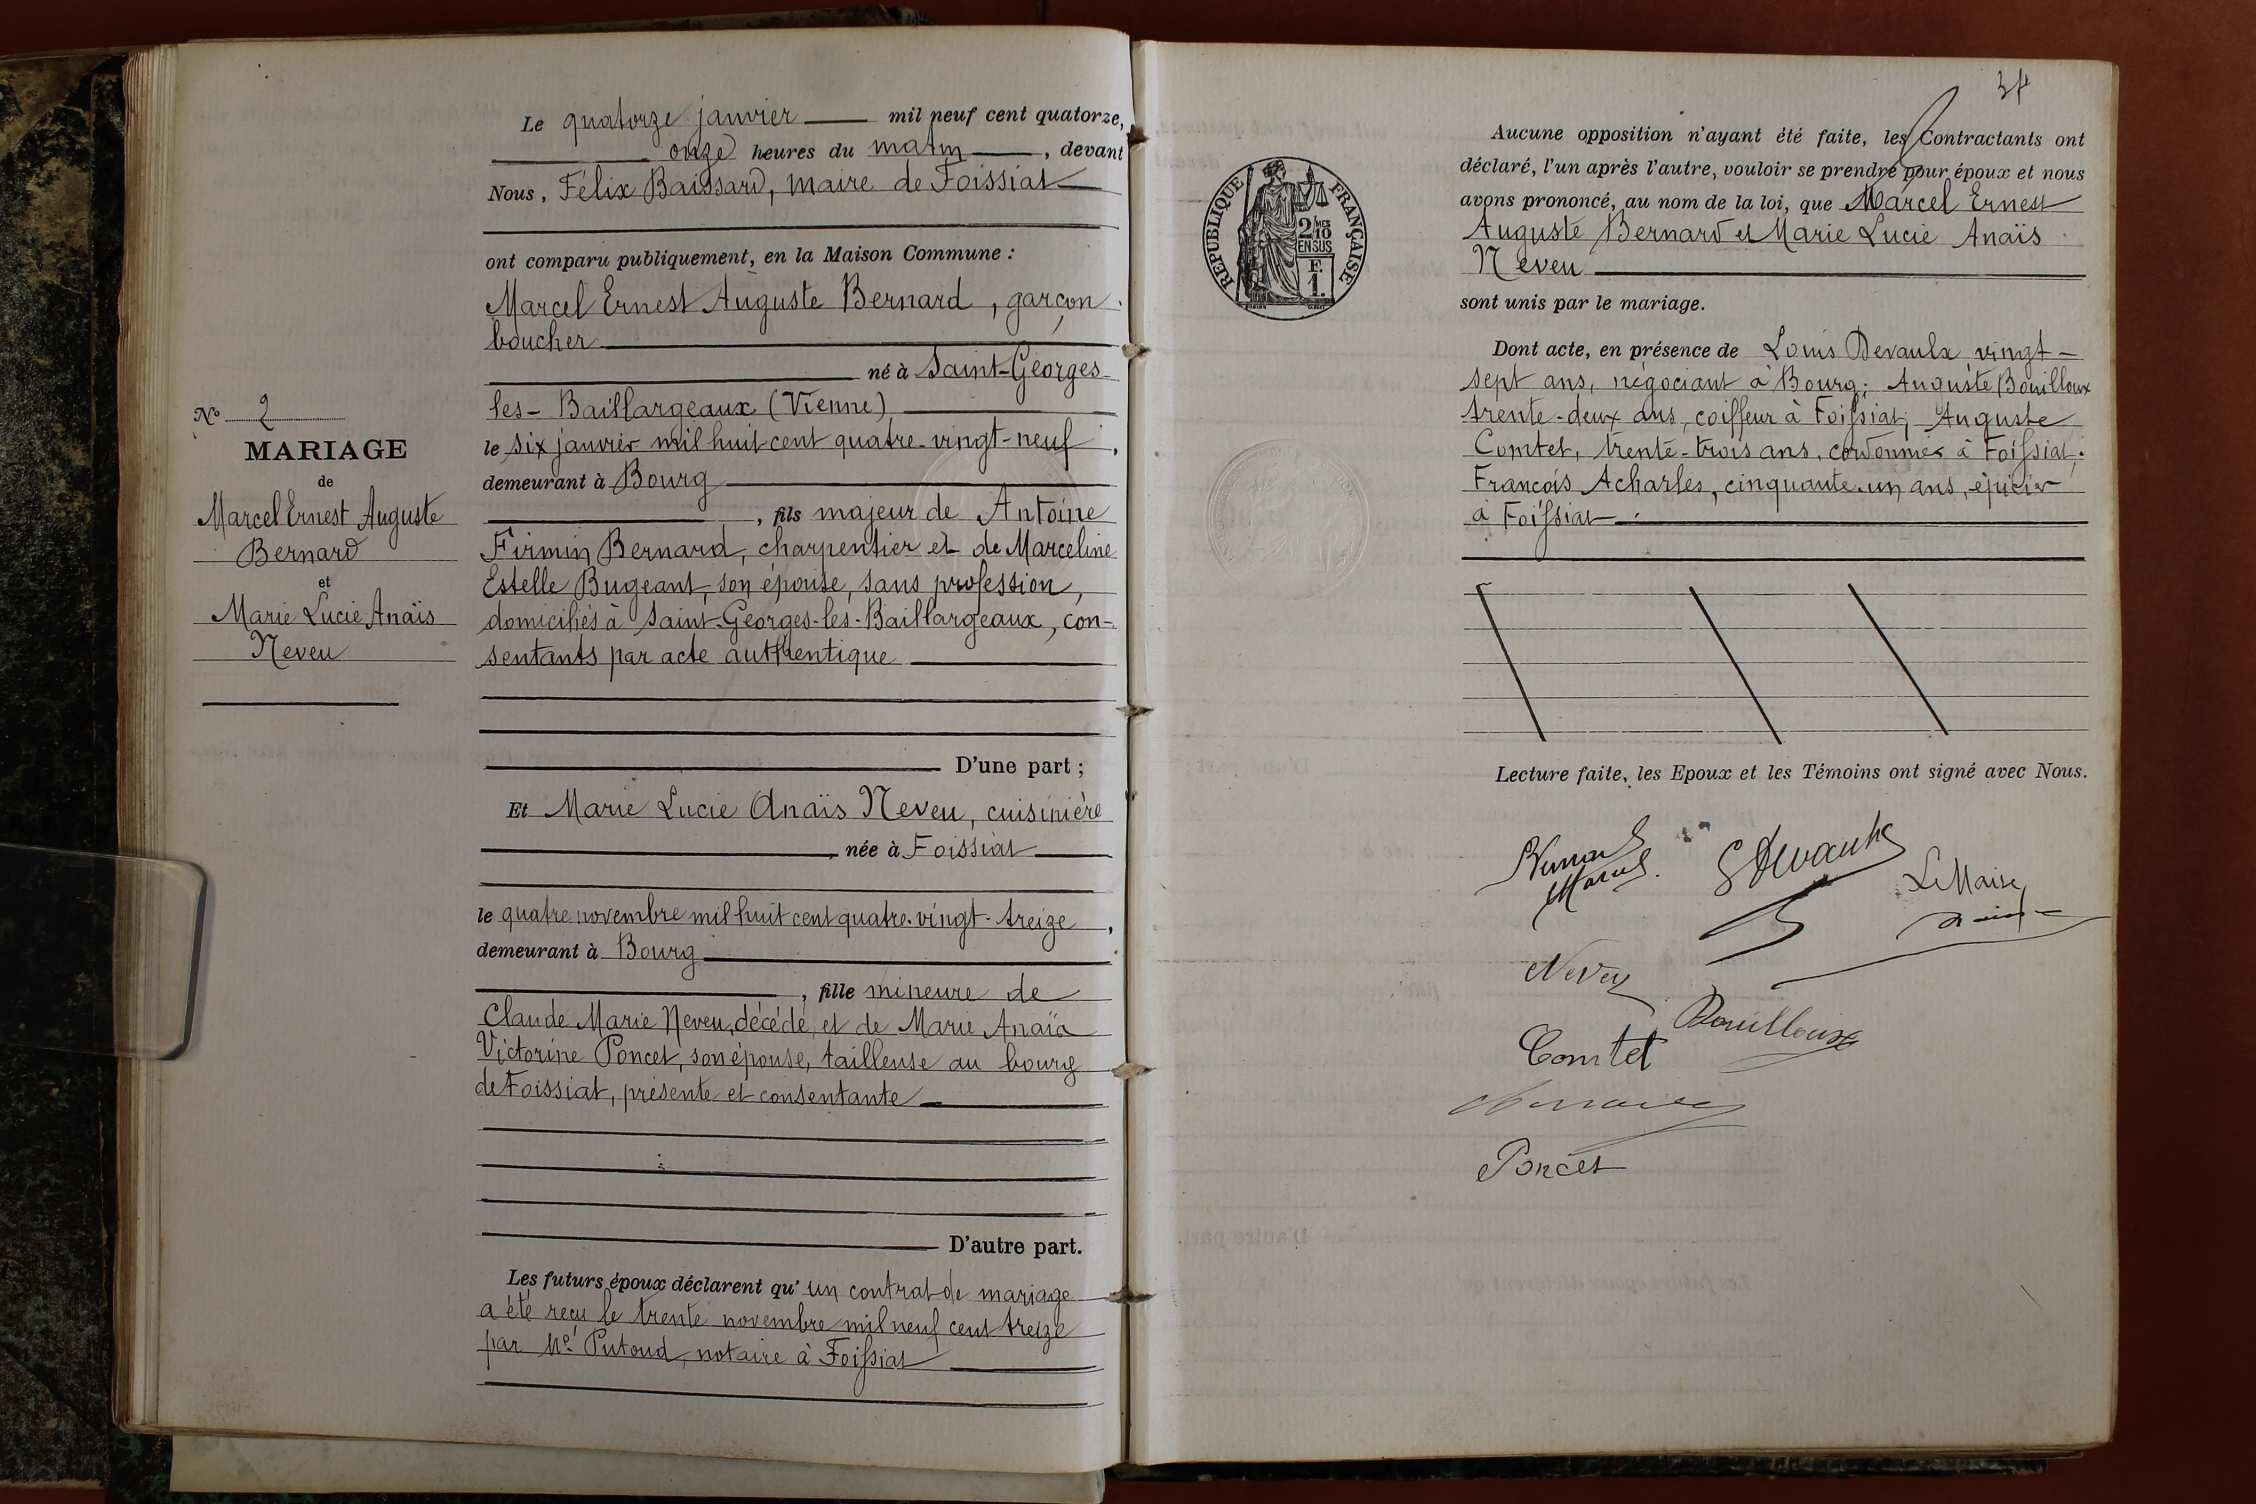 Le quatorze janvier mil neuf cent quatorze,
onze heures du matin, devant
Nous, Félix Baissard, maire de Foissiat
ont comparu publiquement, en la Maison Commune :
Marcel Ernest Auguste Bernard, garçon
boucher
né à Saint-Georges-
les-Baillargeaux (Vienne)
le six janvier mil huit cent quatre-vingt-neuf,
demeurant à Bourg
, fils majeur de Antoine
Firmin Bernard, charpentier et de Marceline
Estelle Bugeant, son épouse, sans profession,
domiciliés à Saint-Georges-les-Baillargeaux, con-
sentants par acte authentique
D'une part ;
Et Marie Lucie Anaïs Neveu, cuisinière
, née à Foissiat
le quatre novembre mil huit cent quatre-vingt-treize,
demeurant à Bourg
, fille mineure de
Claude Marie Neveu, décédé, et de Marie Anaïs
Victorine Poncet, son épouse, tailleuse au bourg
de Foissiat, présente et consentante
D'autre part.
Les futurs époux déclarent qu'un contrat de mariage
a été reçu le trente novembre mil neuf cent treize
par Me Putoud, notaire à Foissiat
No 2
MARIAGE
de
Marcel Ernest Auguste
Bernard
et
Marie Lucie Anaïs
Neveu
34
RÉPUBLIQUE FRANÇAISE
2/10 MES
EN SUS
F.
1.
Aucune opposition n'ayant été faite, les Contractants ont
déclaré, l'un après l'autre, vouloir se prendre pour époux et nous
avons prononcé, au nom de la loi, que Marcel Ernest
Auguste Bernard et Marie Lucie Anaïs
Neveu
sont unis par le mariage.
Dont acte, en présence de Louis Devaulx vingt-
sept ans, négociant à Bourg ; Auguste Bouilloux
trente-deux ans, coiffeur à Foissiat ; Auguste
Comtet, trente-trois ans, cordonnier à Foissiat ;
François Acharles, cinquante-un ans, épicier
à Foissiat
Lecture faite, les Epoux et les Témoins ont signé avec Nous.
Bernard
Marcel
Devaulx
Le Maire
Neveu
Bouilloux
Comtet
Poncet